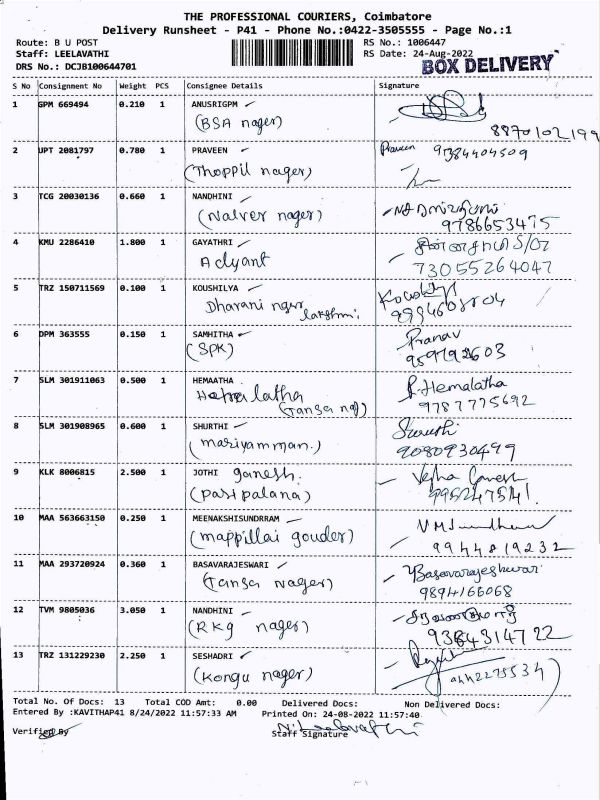 THE PROFESSIONAL COURIERS, Coimbatore
Delivery Runsheet - P41 - Phone No.:0422-3505555 - Page No.:1
Route: B U POST RS No.: 1006447
Staff: LEELAVATHI RS Date: 24-Aug-2022
DRS No.: DCJB100644701 BOX DELIVERY
S No Consignment No Weight PCS Consignee Details Signature
1 GPM 669494 0.210 1 ANUSRIGPM
(BSA nager) 8870102199
2 UPT 2081797 0.780 1 PRAVEEN Praveen 9384404509
(Thoppil nager)
3 TCG 20030136 0.660 1 NANDHINI
(Nalver nager) 9786653475
4 KMU 2286410 1.800 1 GAYATHRI
Adyant 73055264047
5 TRZ 150711569 0.100 1 KOUSHILYA
Dharani nger lakshmi
6 DPM 363555 0.150 1 SAMHITHA Pranav
(SPK)
7 SLM 301911063 0.500 1 HEMAATHA P. Hemalatha
latha (Tansa ng) 9787775692
8 SLM 301908965 0.600 1 SHURTHI Swruthi
(mariyamman.) 9080930499
9 KLK 8006815 2.500 1 JOTHI ganesh.
(pasipalana) 995247541
10 MAA 563663150 0.250 1 MEENAKSHISUNDRRAM
(mappillai gouder) 9944819232
11 MAA 293720924 0.360 1 BASAVARAJESWARI Basavarajeshwari
(Tansa Nager) 9894166068
12 TVM 9805036 3.050 1 NANDHINI
(RKg nager) 9384314722
13 TRZ 131229230 2.250 1 SESHADRI
(Kongu nager) 9442275534
Total No. Of Docs: 13 Total COD Amt: 0.00 Delivered Docs: Non Delivered Docs:
Entered By :KAVITHAP41 8/24/2022 11:57:33 AM Printed On: 24-08-2022 11:57:40
Verified By Staff Signature